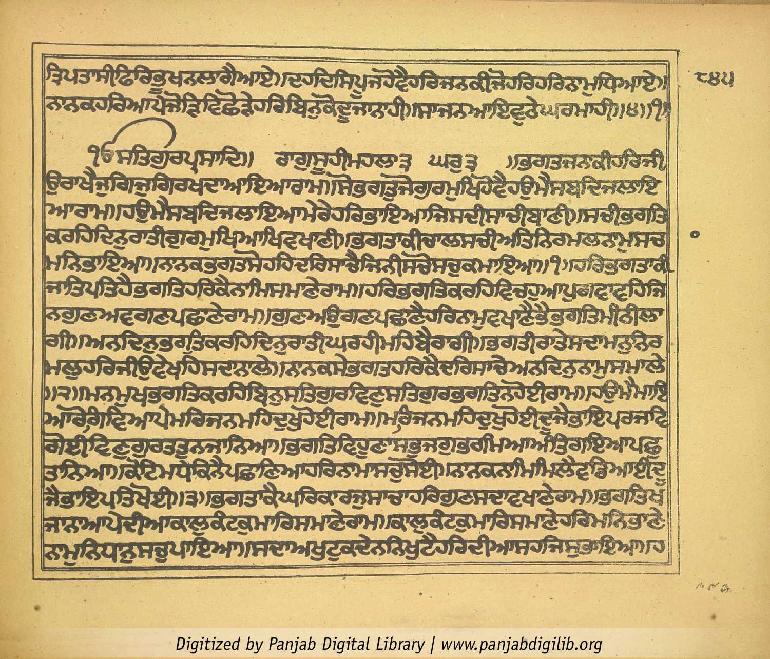 ਤ੍ਰਿਪਤਾਸੀਫਿਰਿਭੂਖਨਲਗੈਆਏ॥ਦਹਦਿਸਿਪੂਜਹੋਵੈਹਰਿਜਨਕੀਜੋਹਰਿਹਰਿਨਾਮੁਧਿਆਏ॥
ਨਾਨਕਹਰਿਆਪੇਜੋੜਿਵਿਛੋੜੇਹਰਿਬਿਨੁਕੋਦੂਜਾਨਾਹੀ॥ਸਾਜਨਆਇਵੁਠੇਘਰਮਾਹੀ॥੪॥੧॥
੮੪੫
ੴਸਤਿਗੁਰਪ੍ਰਸਾਦਿ॥ ਰਾਗੁਸੂਹੀਮਹਲਾ੩ ਘਰੁ੩ ॥ਭਗਤਜਨਾਕੀਹਰਿਜੀ
ਉਰਾਖੈਜੁਗਿਜੁਗਿਰਖਦਾਆਇਆਰਾਮ॥ਸੋਭਗਤੁਜੋਗੁਰਮੁਖਿਹੋਵੈਹਉਮੈਸਬਦਿਜਲਾਇ
ਆਰਾਮ॥ਹਉਮੈਸਬਦਿਜਲਾਇਆਮੇਰੇਹਰਿਭਾਇਆਜਿਸਦੀਸਾਚੀਬਾਣੀ॥ਸਚੀਭਗਤਿ
ਕਰਹਿਦਿਨੁਰਾਤੀਗੁਰਮੁਖਿਆਖਿਵਖਾਣੀ॥ਭਗਤਾਕੀਚਾਲਸਚੀਅਤਿਨਿਰਮਲਨਾਮੁਸਚਾ
ਮਨਿਭਾਇਆ॥ਨਾਨਕਭਗਤਸੋਹਹਿਦਰਿਸਾਚੈਜਿਨੀਸਚੋਸਚੁਕਮਾਇਆ॥੧॥ਹਰਿਭਗਤਾਕੀ
ਜਾਤਿਪਤਿਹੈਭਗਤਹਰਿਕੈਨਾਮਿਸਮਾਣੇਰਾਮ॥ਹਰਿਭਗਤਿਕਰਹਿਵਿਚਹੁਆਪੁਗਵਾਵਹਿਜਿ
ਨਗੁਣਅਵਗਣਪਛਾਣੇਰਾਮ॥ਗੁਣਅਉਗਣਪਛਾਣੈਹਰਿਨਾਮੁਵਖਾਣੈਭੈਭਗਤਿਮੀਠੀਲਾ
ਗੀ॥ਅਨਦਿਨੁਭਗਤਿਕਰਹਿਦਿਨੁਰਾਤੀਘਰਹੀਮਹਿਬੈਰਾਗੀ॥ਭਗਤੀਰਾਤੇਸਦਾਮਨੁਨਿਰ
ਮਲੁਹਰਿਜੀਉਵੇਖਹਿਸਦਾਨਾਲੇ॥ਨਾਨਕਸੇਭਗਤਹਰਿਕੈਦਰਿਸਾਚੇਅਨਦਿਨੁਨਾਮੁਸਮਾਲੇ
॥੨॥ਮਨਮੁਖਭਗਤਿਕਰਹਿਬਿਨੁਸਤਿਗੁਰਵਿਣੁਸਤਿਗੁਰਭਗਤਿਨਹੋਈਰਾਮ॥ਹਉਮੈਮਾਇ
ਆਰੋਗਿਵਿਆਪੇਮਰਿਜਨਮਹਿਦੁਖੁਹੋਈਰਾਮ॥ਮਰਿਜਨਮਹਿਦੁਖੁਹੋਈਦੂਜੈਭਾਇਪਰਜਵਿ
ਗੋਈਵਿਣੁਗੁਰਤਤੁਨਜਾਨਿਆ॥ਭਗਤਿਵਿਹੂਣਾਸਭੁਜਗੁਭਰਮਿਆਅੰਤਿਗਇਆਪਛੁ
ਤਾਨਿਆ॥ਕੋਟਿਮਧੇਕਿਨੈਪਛਾਣਿਆਹਰਿਨਾਮਾਸਚੁਸੋਈ॥ਨਾਨਕਨਾਮਿਮਿਲੈਵਡਿਆਈਦੂ
ਜੈਭਾਇਪਤਿਖੋਈ॥੩॥ਭਗਤਾਕੈਘਰਿਕਾਰਜੁਸਾਚਾਹਰਿਗੁਣਸਦਾਵਖਾਣੇਰਾਮ॥ਭਗਤਿਖ
ਜਾਨਾਆਪੇਦੀਆਕਾਲੁਕੰਟਕੁਮਾਰਿਸਮਾਣੇਰਾਮ॥ਕਾਲੁਕੰਟਕੁਮਾਰਿਸਮਾਣੇਹਰਿਮਨਿਭਾਣੇ
ਨਾਮੁਨਿਧਾਨੁਸਚੁਪਾਇਆ॥ਸਦਾਅਖੁਟੁਕਦੇਨਨਿਖੁਟੈਹਰਿਦੀਆਸਹਜਿਸੁਭਾਇਆ॥ਹ
Digitized by Panjab Digital Library | www.panjabdigilib.org